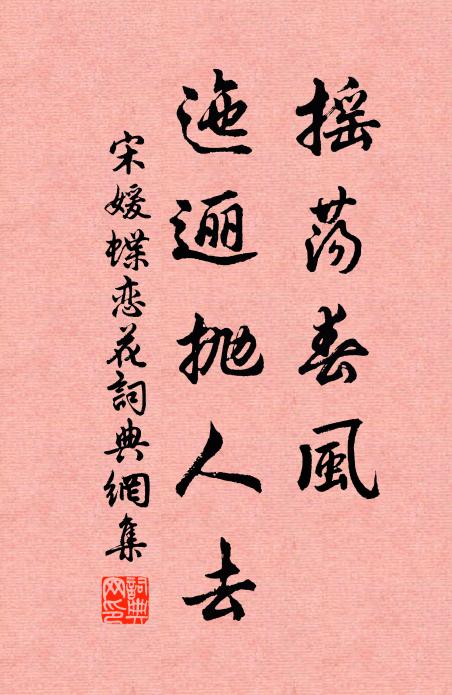 摇荡春風
迤逦抛人去
宋媛蝶恋花詞典網集
詞典網印